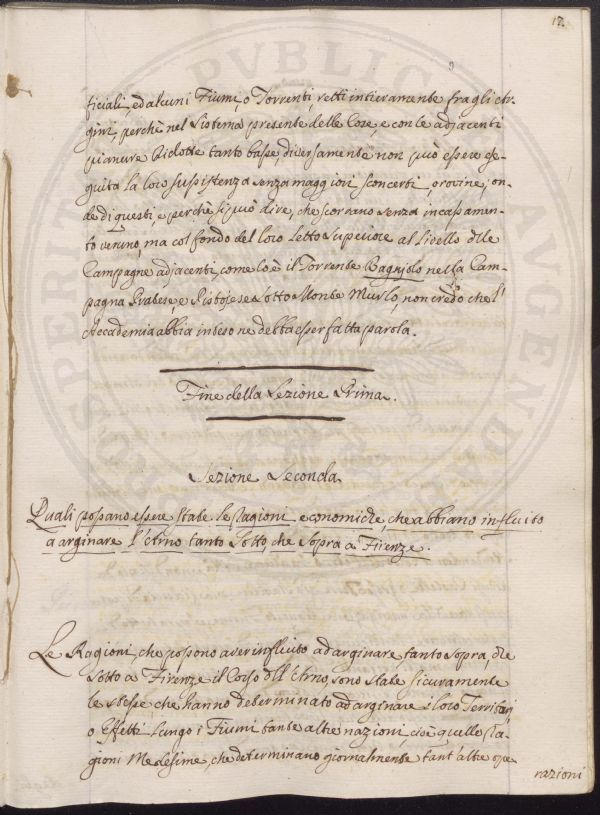 17.
ficiali, ed alcuni Fiumi, o Torrenti, retti intieramente fra gli Ar-
gini, perchè nel Sistema presente delle Cose, e con le adjacenti
pianure Ridotte tanto basse diversamente non può essere se-
guita la loro sussistenza senza maggiori sconcerti, o rovine; on-
de di questi, e perchè si può dire, che scorrano senza incassamen-
to veruno, ma col fondo del loro Letto superiore al Livello dlle
Campagne adjacenti, come lo è il Torrente Bagnolo nella Cam-
pagna Pratese, e Pistojese sotto Monte Murlo, non credo che l'
Accademia abbia inteso ne debba esser fatta parola.
Fine della Lezione Prima.
Lezione Seconda.
Quali possano essere state le Ragioni economiche, che abbiano influito
a arginare l'Arno tanto Sotto, che Sopra a Firenze.
Le Ragioni, che possono aver influito ad arginare, tanto sopra, che
sotto a Firenze il Corso dll'Arno sono state sicuramente
le stesse che hanno determinato ad arginare i loro Territorj,
o Effetti lungo i Fiumi tante altre nazioni, cioè quelle Ra-
gioni Medesime, che determinano giornalmente tant'altre ope-
razioni